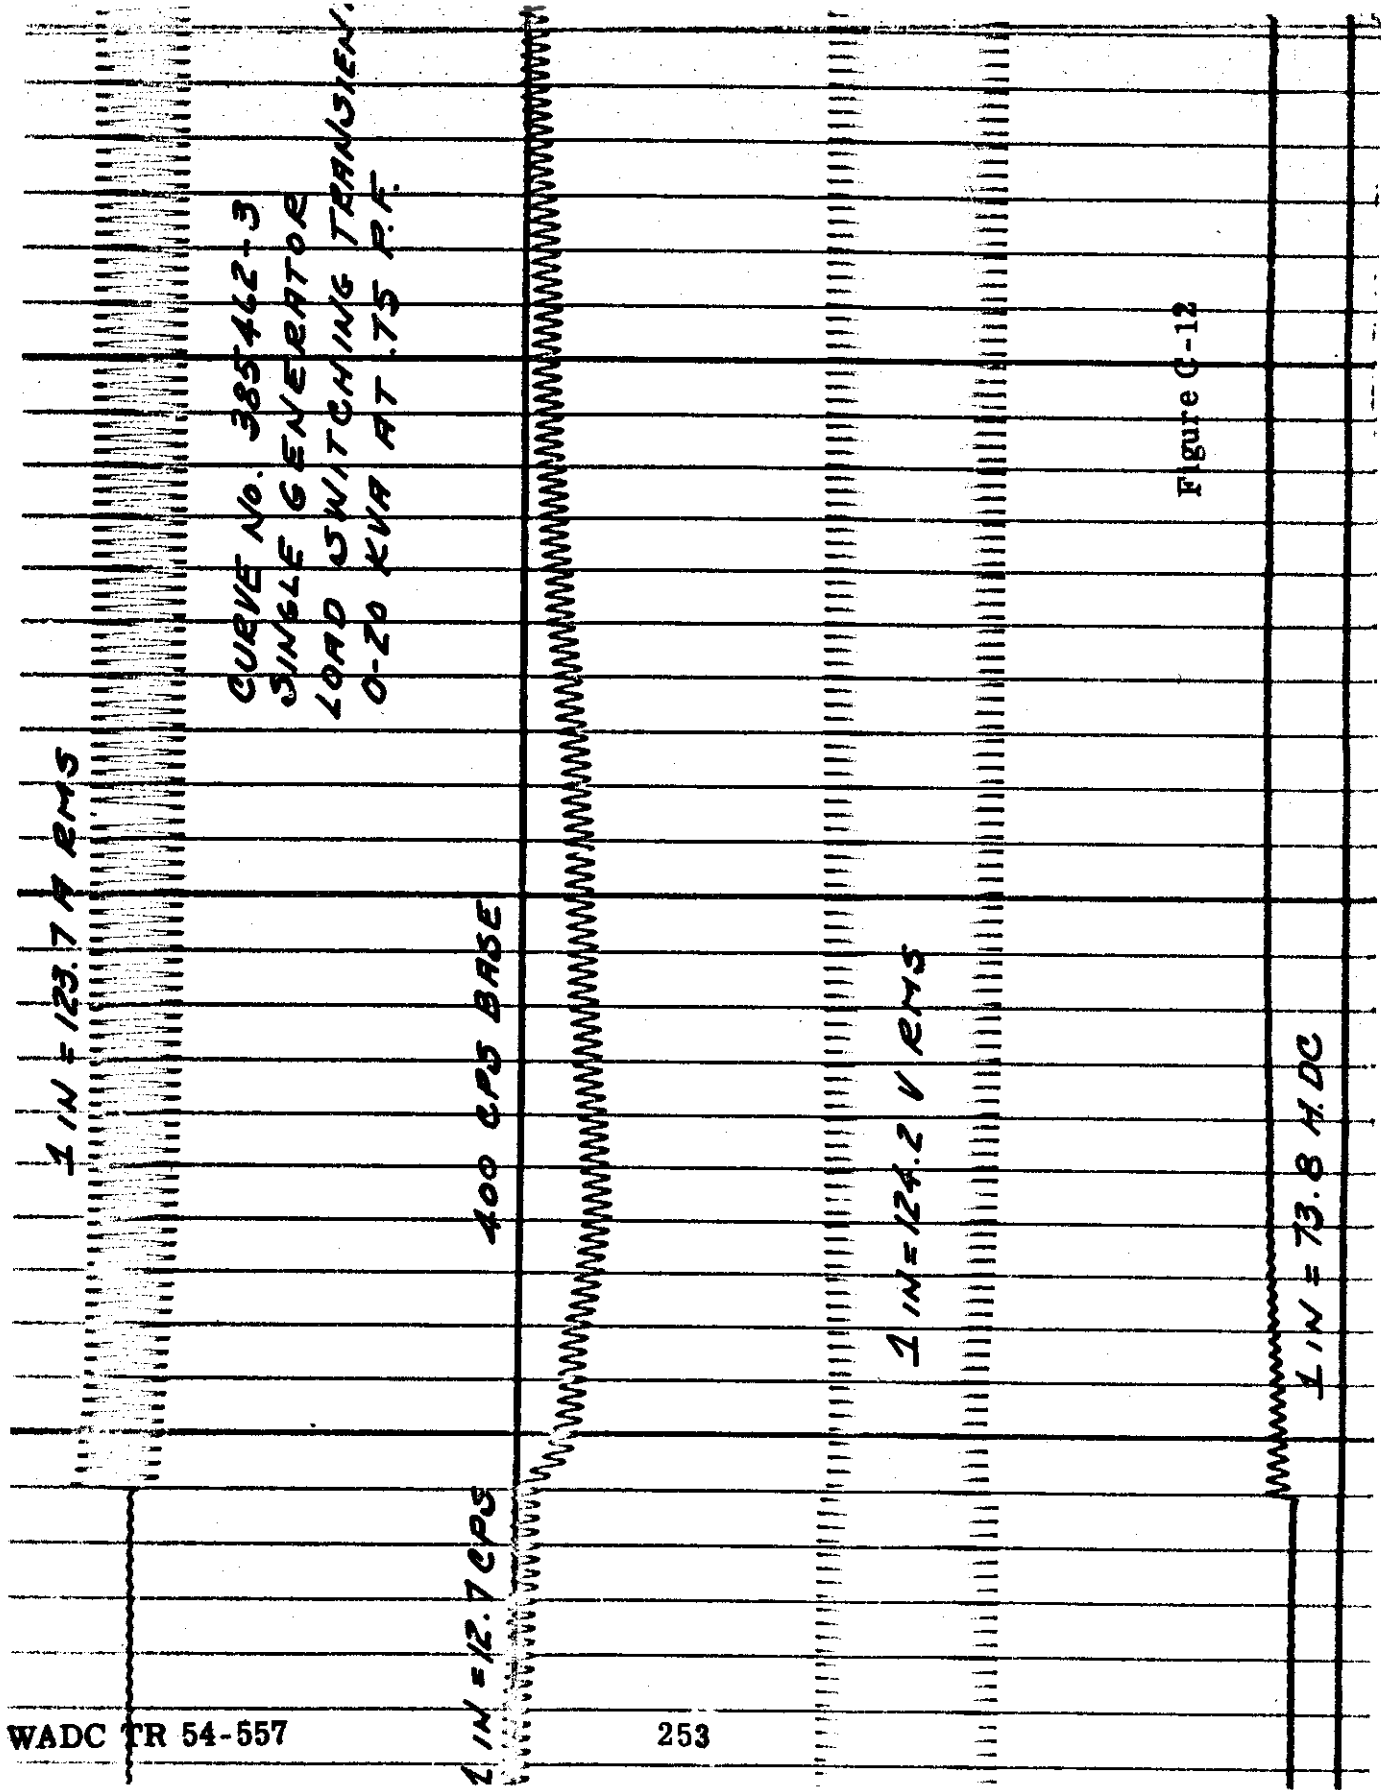 1 IN = 123.7 A RMS
CURVE NO. 385462-3
SINGLE GENERATOR
LOAD SWITCHING TRANSIEN
0-20 KVA AT .75 P.F.
1 IN = 12.7 CPS
400 CPS BASE
1 IN = 124.2 V RMS
Figure C-12
1 IN = 73.8 A. DC
WADC TR 54-557
253